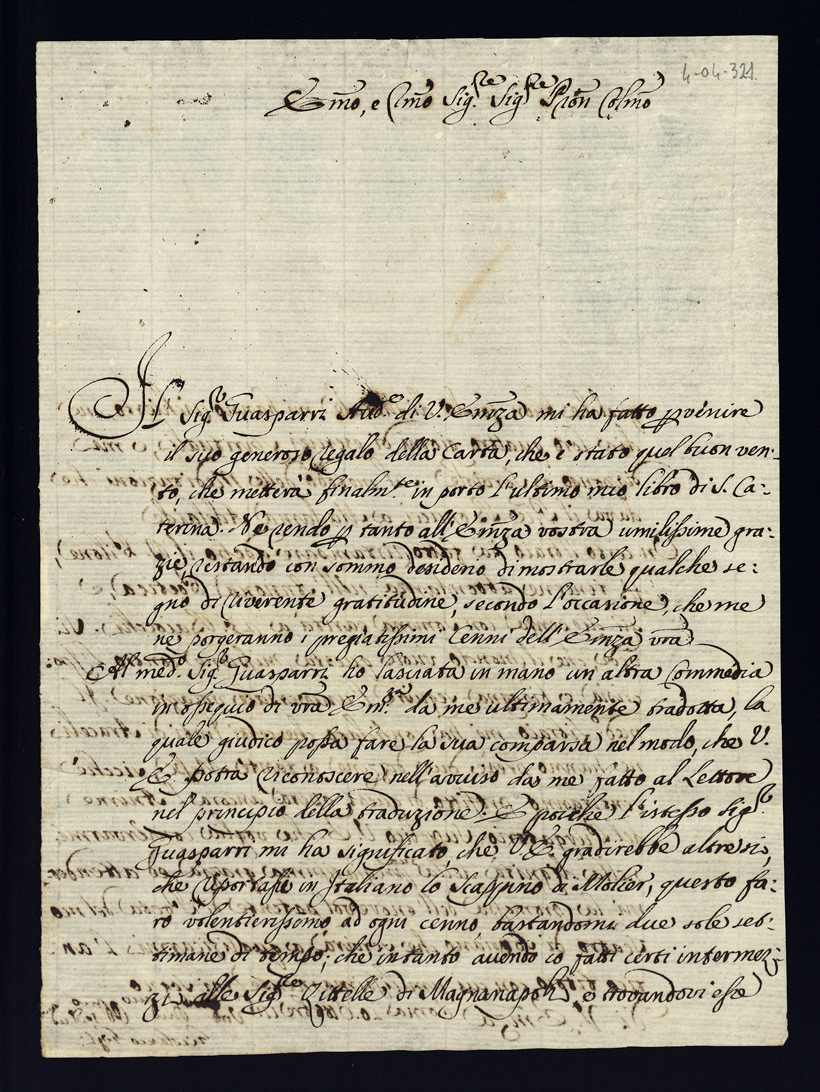 4-04-321
Em̃o, e Rm̃o Sig.re Sig.re Prõn Colm̃o
Il Sig.r Guasparri Aud.e di V. Em̃za mi ha fatto pvenire
il suo generoso regalo della Carta, che è stato quel buon ven-
to, che metterà finalm.te in porto l'ultimo mio libro di S. Ca-
terina. Ne rendo p tanto all'Em̃za vostra umilissime gra-
zie, restando con sommo desiderio di mostrarle qualche se-
gno di riverente gratitudine, secondo l'occasione, che me
ne porgeranno i pregiatissimi Cenni dell'Em̃za vrã
Al med.o Sig.r Guasparri ho lasciata in mano un'altra Commedia
in ossequio di vrã Em.za da me ultimamente tradotta, la
quale giudico possa fare la sua comparsa nel modo, che V.
E. potrà riconoscere nell'avviso da me fatto al Lettore
nel principio della traduzione. E poiche l'istesso Sig.r
Guasparri mi ha significato, che V.E. gradirebbe altresi,
che riportassi in Italiano lo Scappino di Molier, questo fa-
rò volentierissimo ad ogni cenno, bastandomi due sole set-
timane di tempo; che intanto avendo io fatti certi intermez-
zi alle Sig.re Zittelle di Magnanapoli, e trovandovi esse